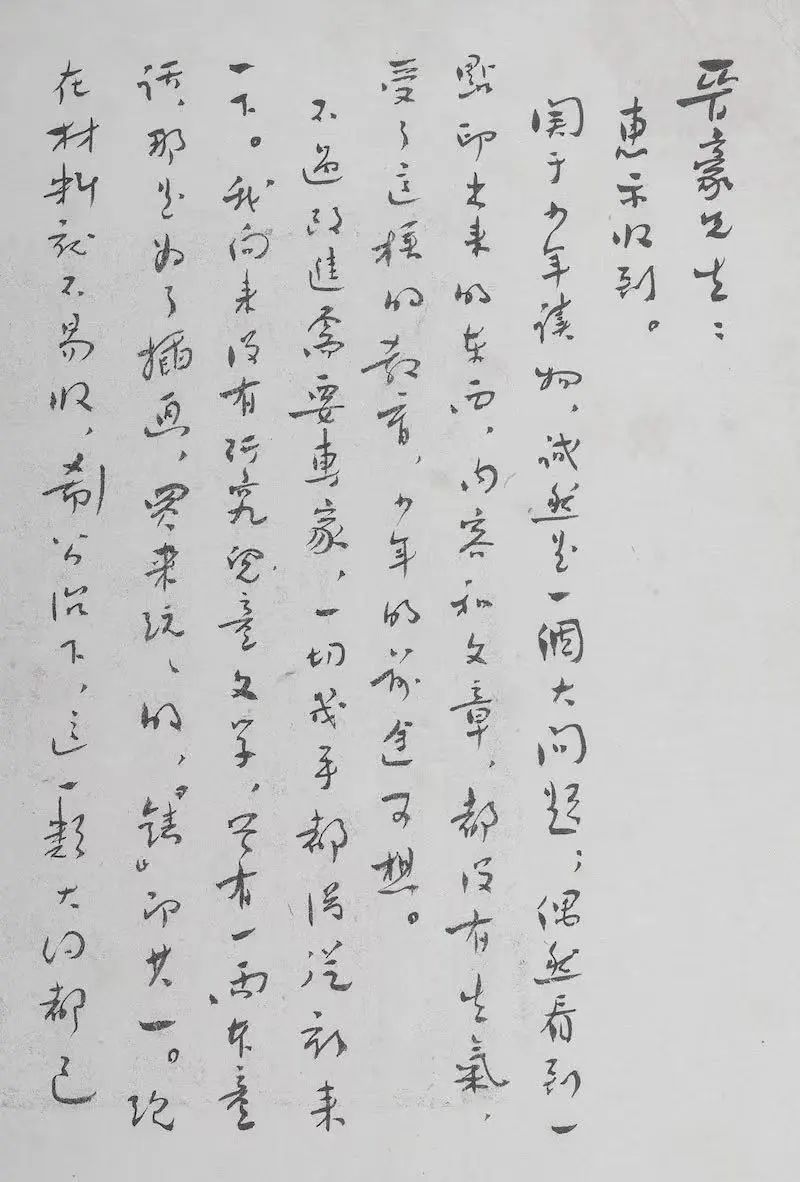 晉豪先生：
惠示收到。
関于少年讀物，誠然是一個大问题；偶然看到一
點印出来的东西，内容和文章，都没有生氣，
受了这樣的教育，少年的前途可想。
不過改進需要專家，一切幾乎都得從新来
一下。我向来没有研究兒童文学，曾有一兩本童
話，那是为了插画，買来玩玩的，“錶”即其一。现
在材料就不易收，希公治下，這一類大约都已